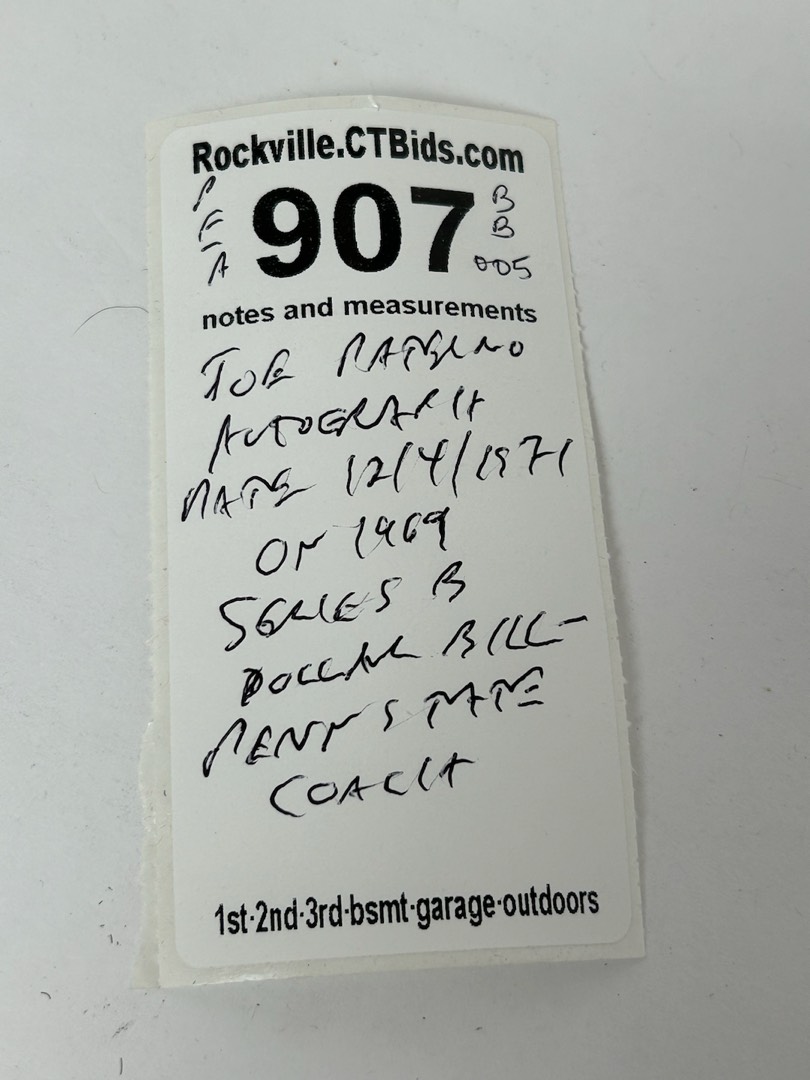 Rockville.CTBids.com
P
E
A
907
B
B
005
notes and measurements
JOE PATERNO
AUTOGRAPH
DATE 12/4/1971
ON 1969
SERIES B
DOLLAR BILL-
PENN STATE
COACH
1st·2nd·3rd·bsmt·garage·outdoors